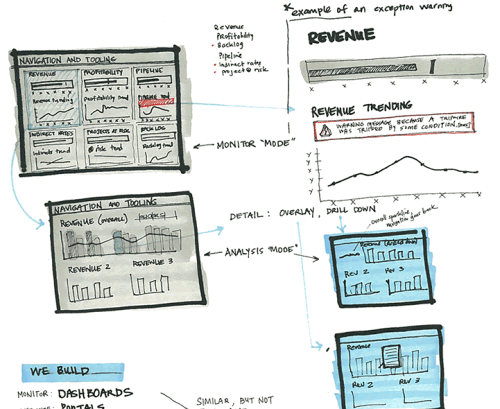 * example of an exception warning
REVENUE
PROFITABILITY
BACKLOG
PIPELINE
INDIRECT RATES
PROJECT @ RISK
REVENUE
NAVIGATION AND TOOLING
REVENUE
PROFITABILITY
PIPELINE
Revenue trending
Profitability trend
INDIRECT RATES
PROJECTS AT RISK
BACKLOG
Indirect trend
@ risk trend
Backlog trend
MONITOR "MODE"
REVENUE TRENDING
WARNING MESSAGE BECAUSE A TRIPWIRE
WAS TRIPPED BY SOME CONDITION.
Y
Y
Y
Y
X X X X X X
NAVIGATION AND TOOLING
REVENUE (OVERALL)
REVENUE 2
REVENUE 3
DETAIL: OVERLAY, DRILL DOWN
ANALYSIS "MODE"
REV 2
REV 3
REVENUE
REV 2
REV 3
WE BUILD
MONITOR: DASHBOARDS
PORTALS
SIMILAR, BUT NOT